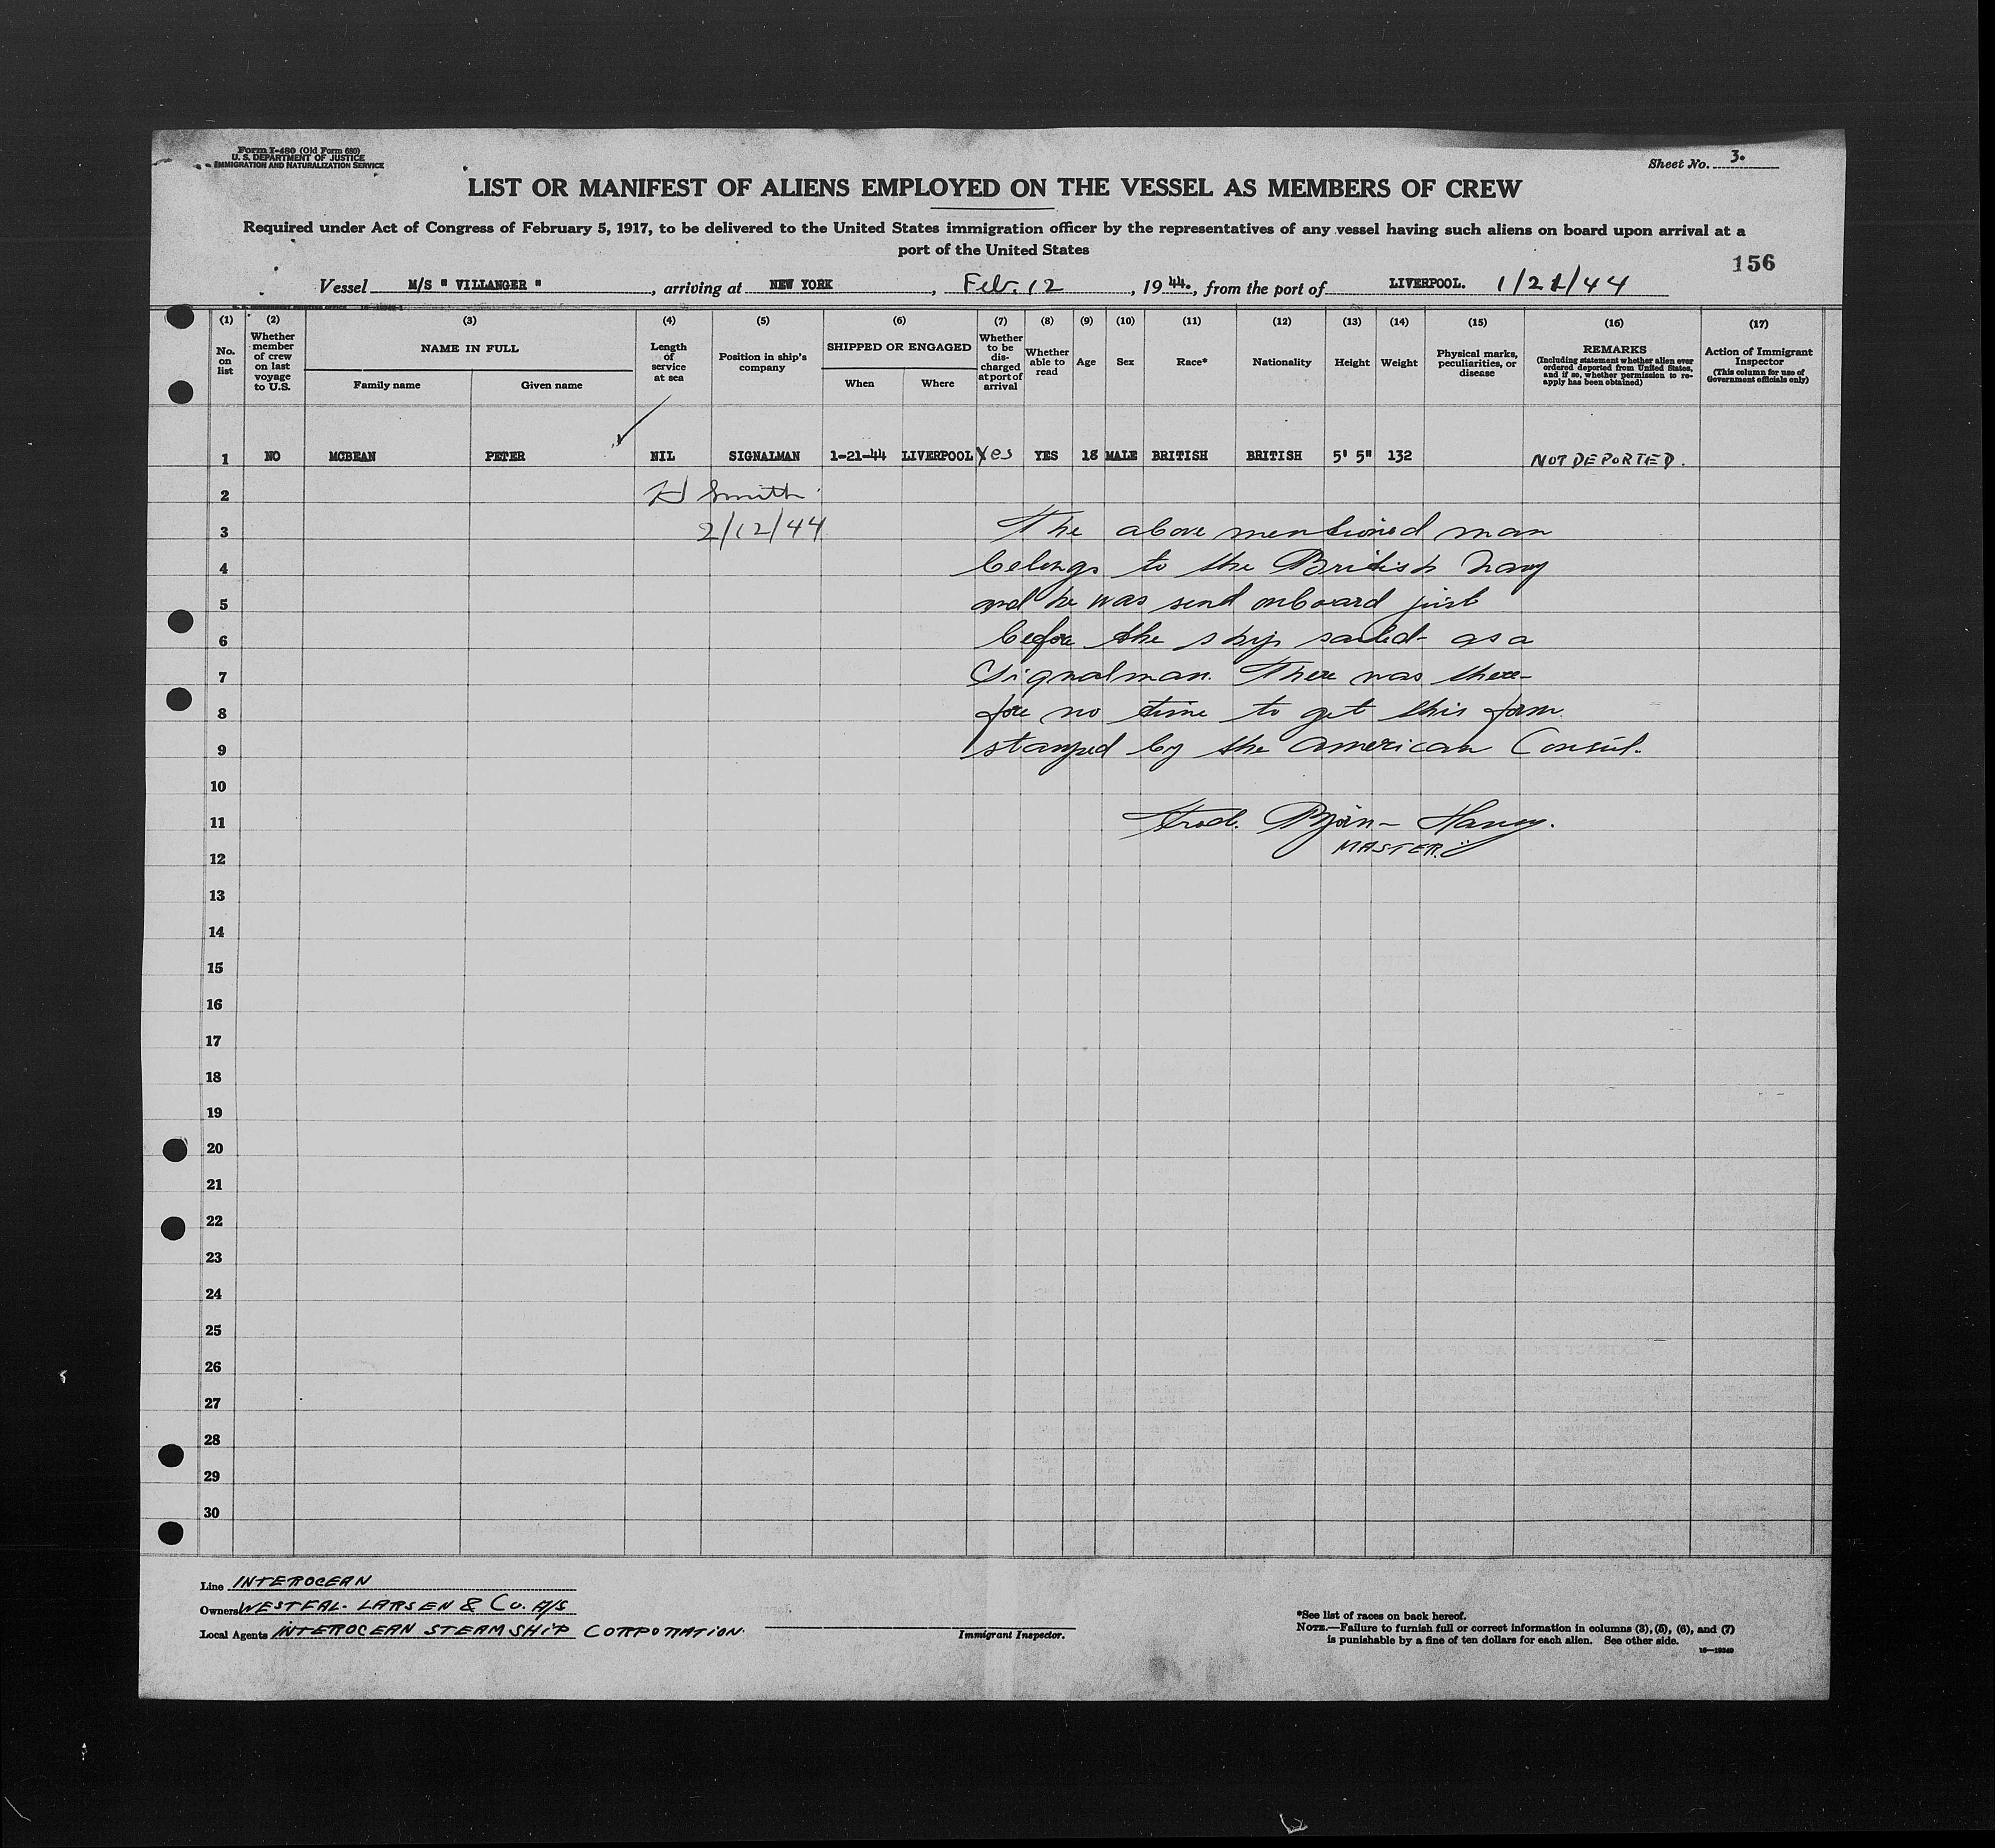 Form I-480 (Old Form 680)
U. S. DEPARTMENT OF JUSTICE
IMMIGRATION AND NATURALIZATION SERVICE
Sheet No. 3.
LIST OR MANIFEST OF ALIENS EMPLOYED ON THE VESSEL AS MEMBERS OF CREW
Required under Act of Congress of February 5, 1917, to be delivered to the United States immigration officer by the representatives of any vessel having such aliens on board upon arrival at a
port of the United States
156
Vessel M/S " VILLANGER ", arriving at NEW YORK, Feb. 12, 1944., from the port of LIVERPOOL. 1/21/44
(1) (2) (3) (4) (5) (6) (7) (8) (9) (10) (11) (12) (13) (14) (15) (16) (17)
No. on list
Whether member of crew on last voyage to U.S.
NAME IN FULL
Family name
Given name
Length of service at sea
Position in ship's company
SHIPPED OR ENGAGED
When
Where
Whether to be discharged at port of arrival
Whether able to read
Age
Sex
Race*
Nationality
Height
Weight
Physical marks, peculiarities, or disease
REMARKS
(Including statement whether alien ever ordered deported from United States, and if so, whether permission to re-apply has been obtained)
Action of Immigrant Inspector
(This column for use of Government officials only)
1 NO MCBEAN PETER NIL SIGNALMAN 1-21-44 LIVERPOOL Yes YES 18 MALE BRITISH BRITISH 5' 5" 132 NOT DEPORTED.
2 H Smith
3 2/12/44 The above mentioned man
4 belongs to the British Navy
5 and he was send onboard just
6 before the ship sailed as a
7 Signalman. There was there-
8 fore no time to get this form
9 stamped by the American Consul.
10
11
12 MASTER.
13
14
15
16
17
18
19
20
21
22
23
24
25
26
27
28
29
30
Line INTEROCEAN
Owners WESTFAL-LARSEN & Co. A/S
Local Agents INTEROCEAN STEAMSHIP CORPORATION.
Immigrant Inspector.
*See list of races on back hereof.
NOTE.—Failure to furnish full or correct information in columns (3), (5), (6), and (7)
is punishable by a fine of ten dollars for each alien. See other side.